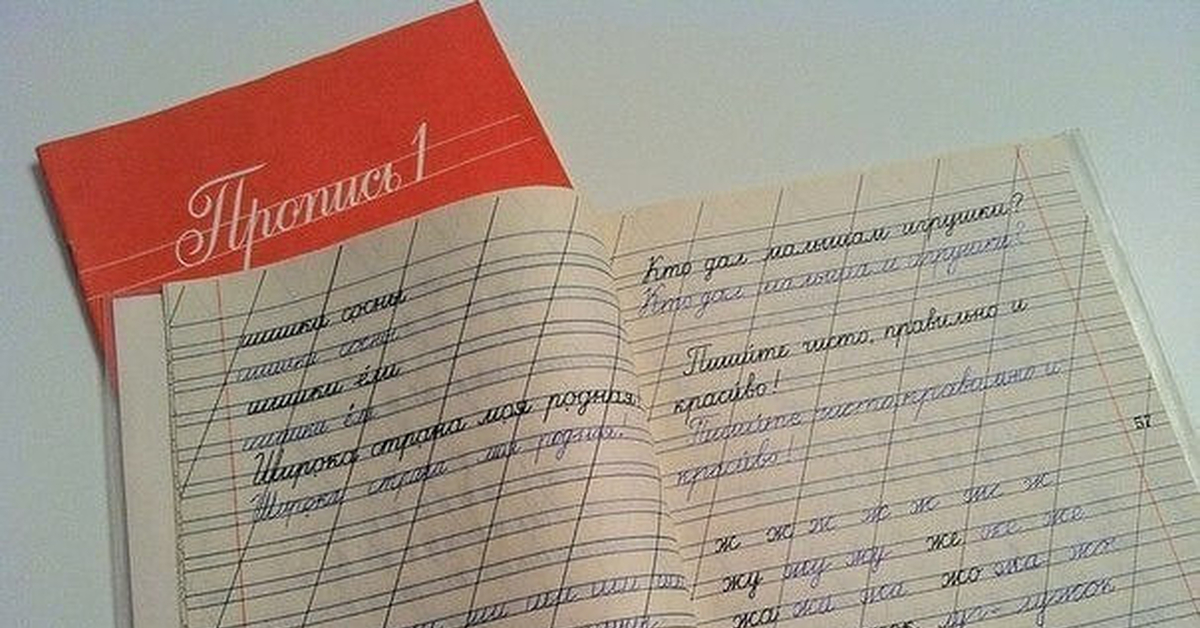 Пропись 1
шишки сосны
шишки сосны
шишки ёлки
шишки
Широка страна моя родная.
Широка страна моя родная.
ши ши ши
Кто дал малышам игрушки?
Кто дал малышам игрушки?
Пишите чисто, правильно и
красиво!
Пишите чисто, правильно и
красиво!
57
ж ж ж ж ж ж ж
жу жу жу же же же
жа жа жа жо жа жа
луг - лужок